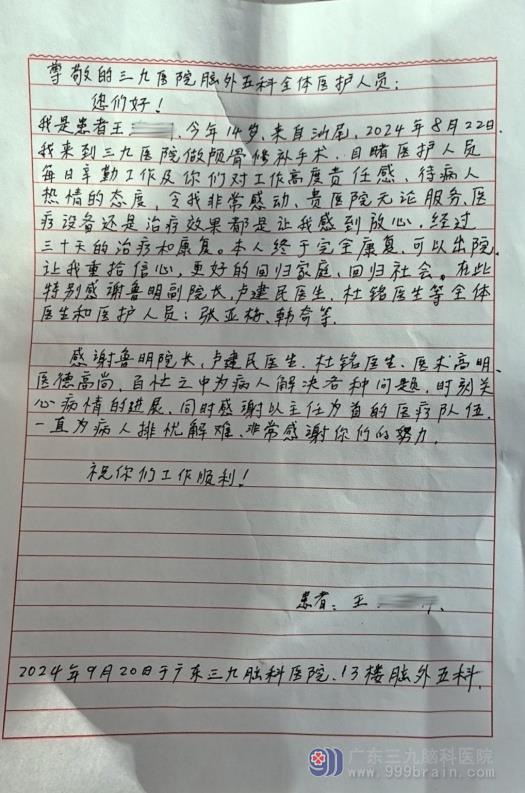 尊敬的三九医院脑外五科全体医护人员:
您们好!
我是患者王 ，今年14岁，来自汕尾，2024年8月22日
我来到三九医院做颅骨修补手术，目睹医护人员
每日辛勤工作及你们对工作高度责任感，待病人
热情的态度，令我非常感动、贵医院无论服务、医
疗设备还是治疗效果都是让我感到放心，经过
三十天的治疗和康复。本人终于完全康复，可以出院，
让我重拾信心，更好的回归家庭、回归社会。在此
特别感谢鲁明副院长，卢建民医生，杜铭医生等全体
医生和医护人员：张亚梅、韩奇等，
感谢鲁明院长，卢建民医生、杜铭医生、医术高明，
医德高尚，百忙之中为病人解决各种问题，时刻关
心病情的进展，同时感谢以主任为首的医疗队伍，
一直为病人排忧解难、非常感谢你们的努力，
祝你们工作顺利!
患者：王
2024年9月20日于广东三九脑科医院、13楼脑外五科，
广东三九脑科医院
www.999brain.com